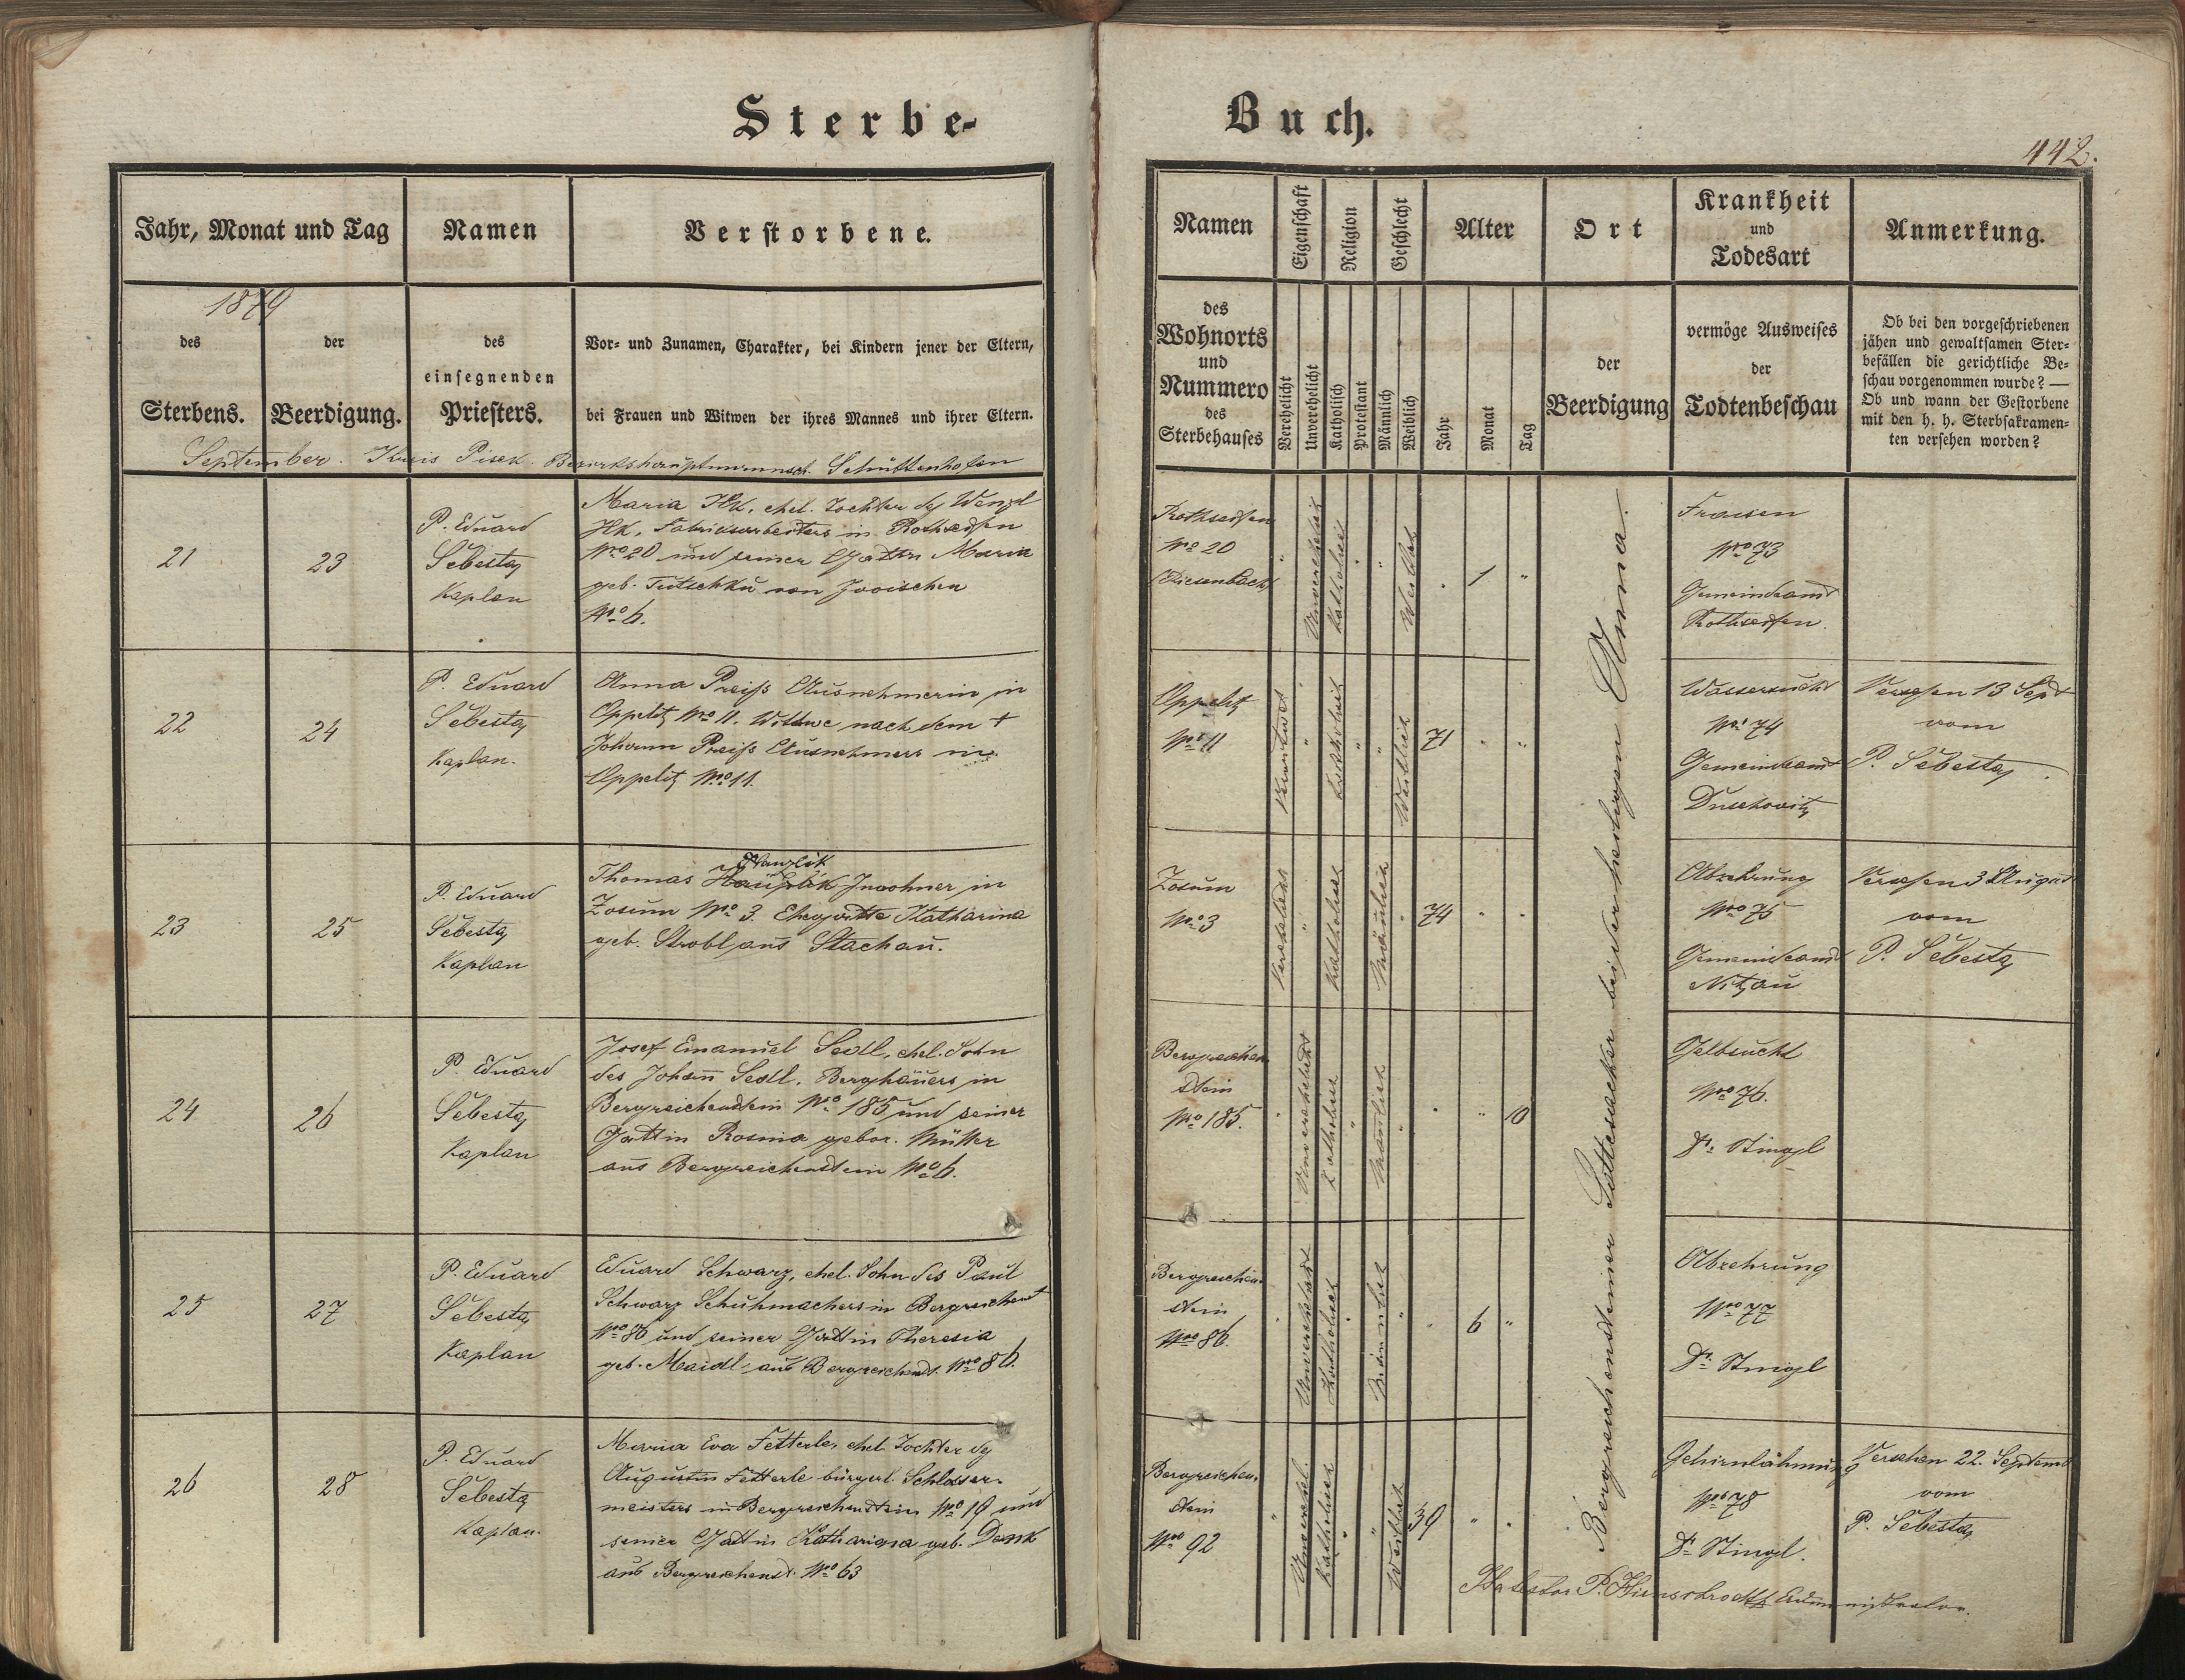 Sterbe-
Buch.
442.
Jahr, Monat und Tag
Namen
Verstorbene.
1879
des
Sterbens.
der
Beerdigung.
des
einsegnenden
Priesters.
Vor- und Zunamen, Charakter, bei Kindern jener der Eltern,
bei Frauen und Witwen der ihres Mannes und ihrer Eltern.
September. Kreis Pisek. Bezirkshauptmannsch. Schüttenhofen
21
23
P. Eduard
Šebesta,
Kaplan
Maria Ilk, ehel. Tochter des Wenzl
Ilk, Fabriksarbeiters in Rothseifen
No 20 und seiner Gattin Maria
geb. Tutschku von
No 6.
22
24
P. Eduard
Šebesta,
Kaplan.
Anna Preiß Ausnehmerin in
Oppelitz No 11. Wittwe nach dem +
Johann Preiß Ausnehmers in
Oppelitz No 11.
23
25
P. Eduard
Šebesta,
Kaplan
Thomas Inwohner in
Zosum No 3. Ehegatte Katharina
geb. Strobl aus Stachau.
24
26
P. Eduard
Šebesta,
Kaplan
Josef Emanuel Sedl, ehel. Sohn
des Johann Sedl, Berghäuers in
Bergreichenstein No 185 und seiner
Gattin Rosina gebor. Müller
aus Bergreichenstein No 6.
25
27
P. Eduard
Šebesta,
Kaplan
Eduard Schwarz, ehel. Sohn des Paul
Schwarz Schuhmachers in Bergreichenst
No 86 und seiner Gattin Theresia
geb. Maidl, aus Bergreichenst. No 86.
26
28
P. Eduard
Šebesta
Kaplan.
Maria Eva Fetterle, ehel. Tochter des
Augustin Fetterle bürgerl. Schlosser-
meisters in Bergreichenstein No 19 und
seiner Gattin Katharina geb. Denk
aus Bergreichenst. No 63
Namen
Eigenschaft
Religion
Geschlecht
Alter
Ort
Krankheit
und
Todesart
Anmerkung.
des
Wohnorts
und
Nummero
des
Sterbehauses
Verehelicht
Unverehelicht
Katholisch
Protestant
Männlich
Weiblich
Jahr
Monat
Tag
der
Beerdigung
vermöge Ausweises
der
Todtenbeschau
Ob bei den vorgeschriebenen
jähen und gewaltsamen Ster-
befällen die gerichtliche Be-
schau vorgenommen wurde? —
Ob und wann der Gestorbene
mit den h. h. Sterbsakramen-
ten versehen worden?
Rothseifen
No 20
(Diesenbach)
"
Unverehelicht
Katholisch
"
"
Weiblich
"
1
"
Fraisen
No 73
Gemeindeamt
Rothseifen.
Oppelitz
No 11
Verwitwet
"
Katholisch
"
"
Weiblich
71
"
"
Wassersucht
No 74
Gemeindeamt
Duschowitz
Versehen 13 Sept
vom
P. Šebesta,
Zosum
No 3
Verehelicht
"
Katholisch
Männlich
"
74
"
"
Abzehrung
No 75
Gemeindeamt
Nitzau
Versehen 3 August
vom
P. Šebesta,
Bergreichen
stein
No 185.
"
Unverehelicht
Katholisch
"
Männlich
"
"
"
10
Gelbsucht
No 76.
Dr. Stingl
Bergreichen-
stein
No 86.
"
Unverehelicht
Katholisch
"
Männlich
"
"
6
"
Abzehrung
No 77
Dr. Stingl
Bergreichen-
stein
No 92
"
Unverehel.
Katholisch
"
"
Weiblich
39
"
"
Gehirnlähmung
No 78
Dr. Stingl.
Versehen 22. Septemb
vom
P. Šebesta,
Bergreichensteiner Gottesacker bei der heiligen Anna.
P. Administrator.